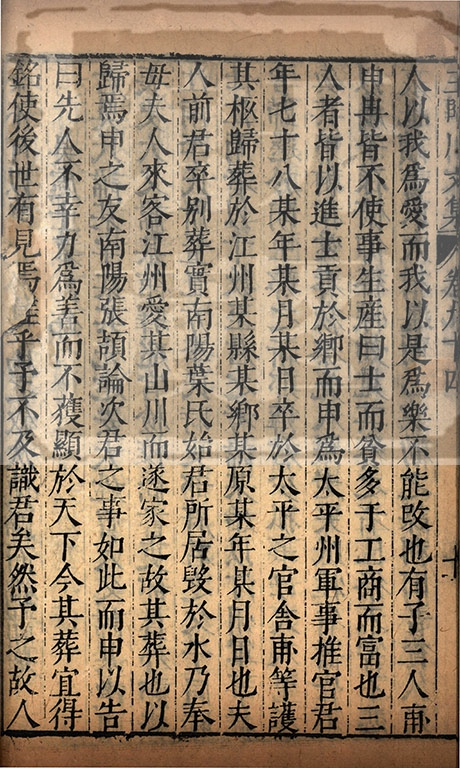 王臨川文集 卷九十四
人以我爲愛而我以是爲樂不能改也有子三人甫
申冉皆不使事生産曰士而貧多于工商而富也三
人者皆以進士貢於鄉而申爲太平州軍事推官君
年七十八某年某月某日卒於太平之官舍甫等護
其柩歸葬於江州某縣某鄉某原某年某月日也夫
人前君卒别葬實南陽葉氏始君所居毀於水乃奉
毋夫人來客江州愛其山川而遂家之故其葬也以
歸焉申之友南陽張頡論次君之事如此而申以告
曰先人不幸力爲善而不獲顯於天下今其葬宜得
銘使後世有見焉乎予不及識君矣然予之故人